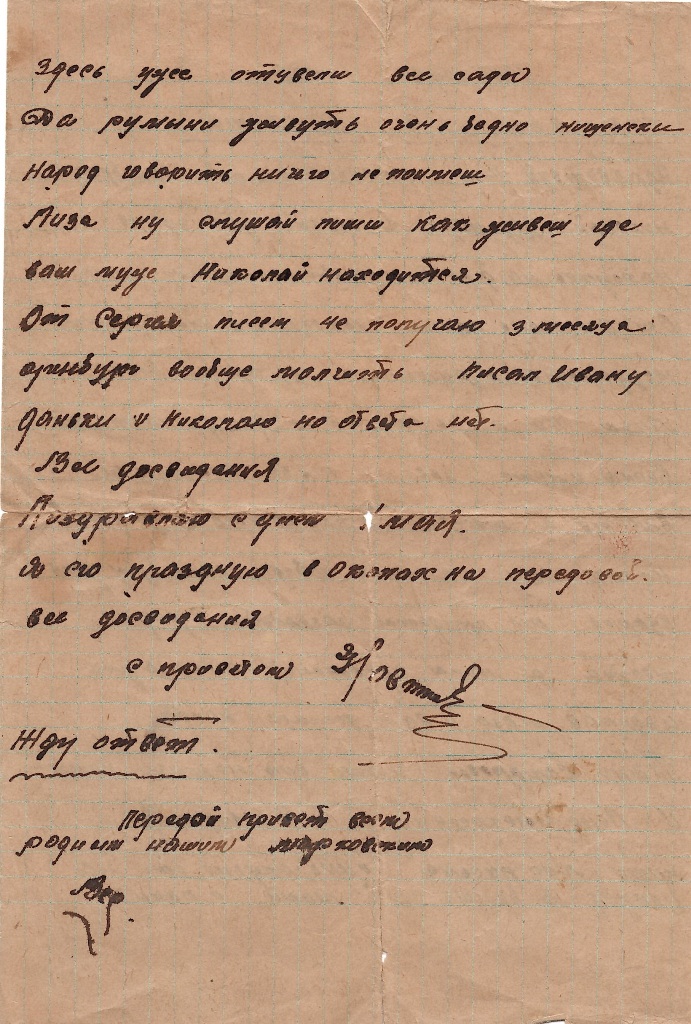 Здесь уже отцвели все сады
Да румыни живуть очень бедно нищенски
народ говорить ничего не поимеш
Лиза ну слушай пиши как живеш где
ваш муж Николай находится.
От Сергея писем не получаю 3 месяца
вообще молчить Писал Ивану
даньки и Николаю но ответа нет.
Все досведания
Поздравляю с днем 1 мая.
Я его праздную в окопах на передовой.
все досведания
с приветом
Жду ответ.
Передай привет всем
родным нашим марковским